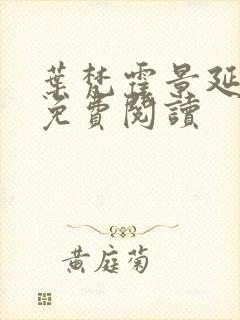 葉梵霆景延
免費閱讀
黃庭菊